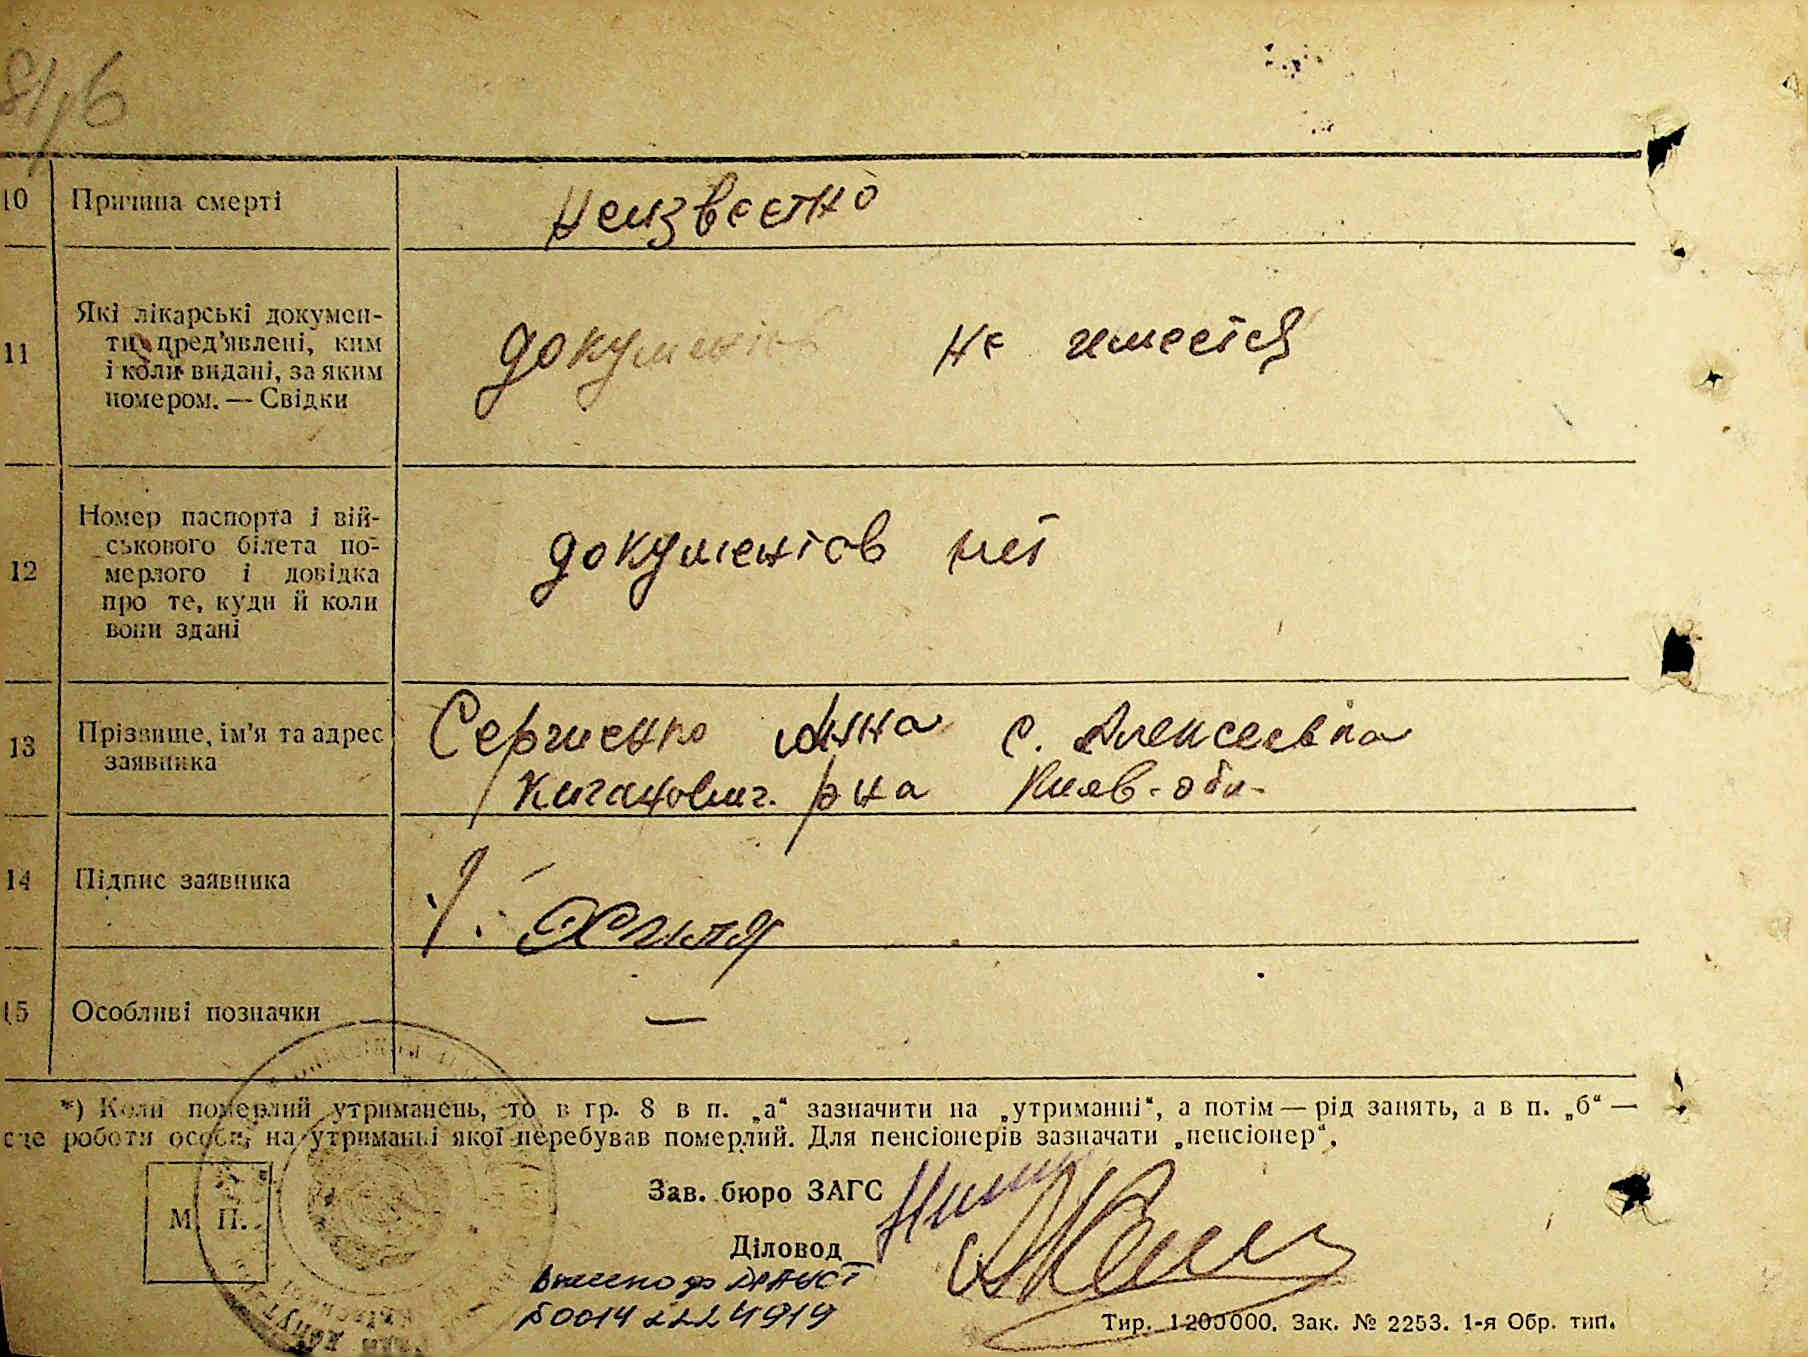 81/16
10 Причина смерті неизвестно
11 Які лікарські докумен-
ти пред'явлені, ким
і коли видані, за яким
номером. — Свідки
документов не имеется
12 Номер паспорта і вій-
ськового білета по-
мерлого і довідка
про те, куди й коли
вони здані
документов нет
13 Прізвище, ім'я та адрес
заявника
Сергиенко Анна с. Алексеевка
Кагановичг. рна Киев. обл.
14 Підпис заявника
15 Особливі позначки —
*) Коли померлий утриманець, то в гр. 8 в п. „а“ зазначити на „утриманні“, а потім — рід занять, а в п. „б“ —
сце роботи особи, на утриманні якої перебував померлий. Для пенсіонерів зазначати „пенсіонер“.
М. П.
Зав. бюро ЗАГС
Діловод
Внесено до ДРАЦСГ
00142224919
Тир. 1200000. Зак. № 2253. 1-я Обр. тип.